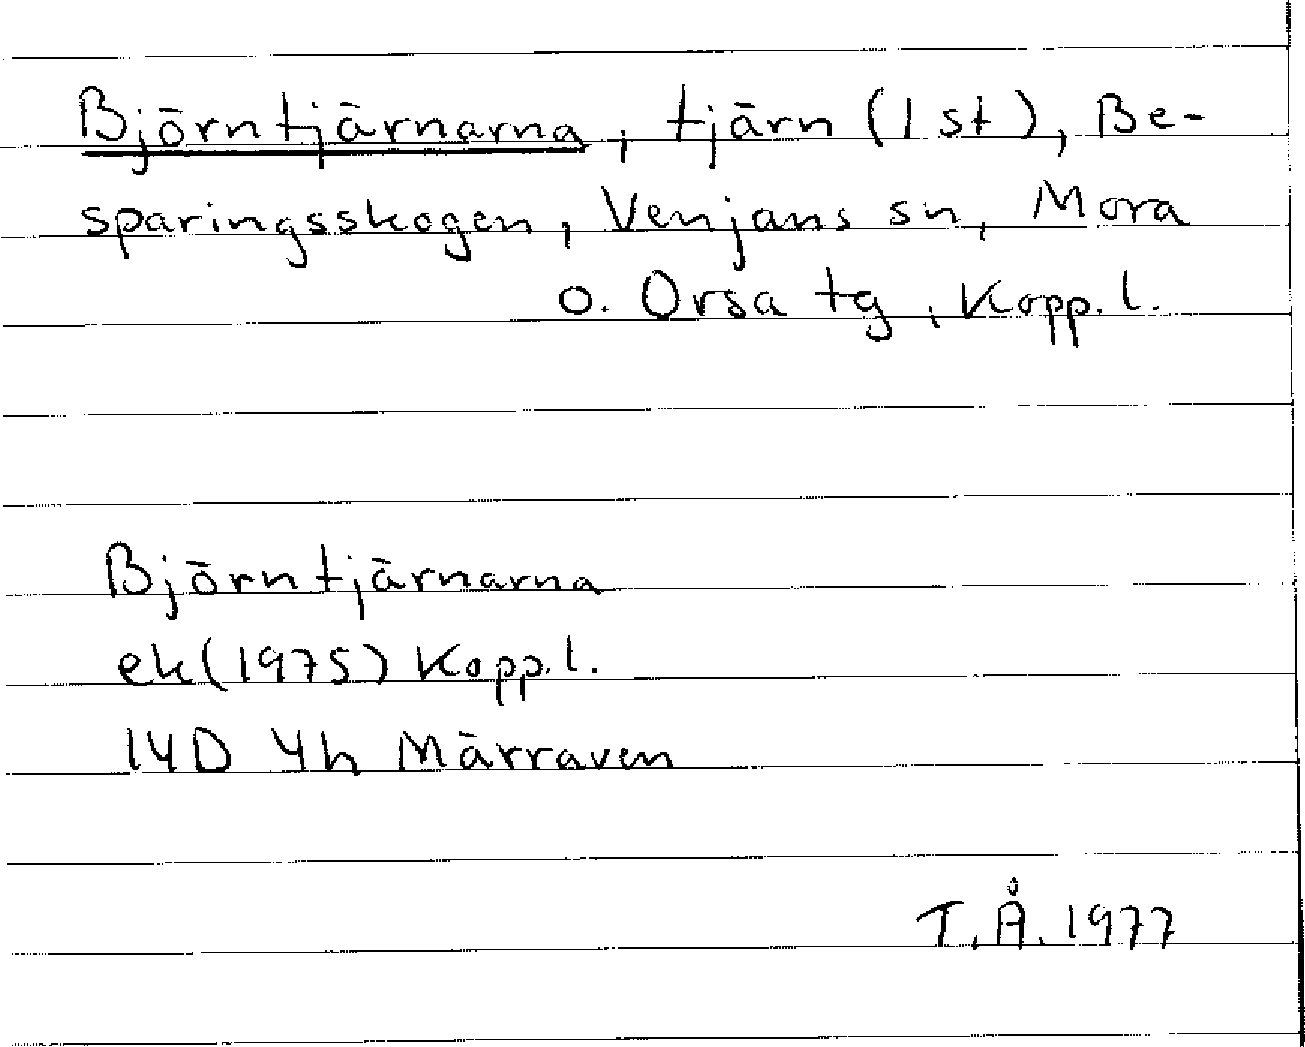 Björntjärnarna, tjärn (1 st), Be-
sparingsskogen, Venjans sn, Mora
o. Orsa tg, Kopp. l.
Björntjärnarna
ek (1975) Kopp. l.
14D 4h Märraven
T.Å. 1977